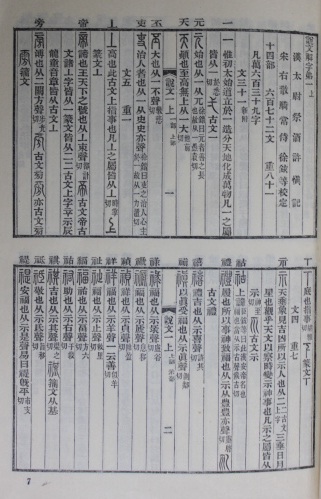 說文解字弟一上
漢太尉祭酒許慎記
宋右散騎常侍徐鉉等校定
十四部 六百七十二文 重八十一
凡萬六百三十九字
文三十一新附
一 惟初太始道立於一造分天地化成萬物凡一之屬
皆从一於悉切 弌古文一
元 始也从一从兀徐鍇曰元者善之長也故从一愚袁切
天 顚也至高無上从一大他前切
丕 大也从一不聲敷悲切
說文一上 一部 上部 一
吏 治人者也从一从史史亦聲徐鍇曰吏之治人心主於一故从一力置切
文五 重一
丄 高也此古文上指事也凡上之屬皆从上時掌切
篆文上
帝 諦也王天下之號也从上朿聲都計切 古文帝古
文諸上字皆从一篆文皆从二二古文上字䇂示辰
龍童音章皆从古文上
旁 溥也从二闕方聲步光切 古文㫄 亦古文㫄
籀文
丅 底也指事胡雅切 篆文丅
文四 重七
示 天垂象見吉凶所以示人也从二二古文上三垂日月
星也觀乎天文以察時變示神事也凡示之屬皆从
示神至切 古文示
祜 上諱臣鉉等曰此漢安帝名也福也當从示古聲候古切
禮 履也所以事神致福也从示从豊豊亦聲靈啟切
古文禮
禧 禮吉也从示喜聲許其切
禛 以眞受福也从示眞聲側鄰切
說文一上 上部 示部 二
祿 福也从示彔聲盧谷切
禠 福也从示虒聲息移切
禎 祥也从示貞聲陟盈切
祥 福也从示羊聲一云善似羊切
祉 福也从示止聲敕里切
福 祐也从示畐聲方六切
祐 助也从示右聲于救切
祺 吉也从示其聲渠之切 籀文从基
祗 敬也从示氐聲旨移切
禔 安福也从示是聲易曰禔旣平市支切
7